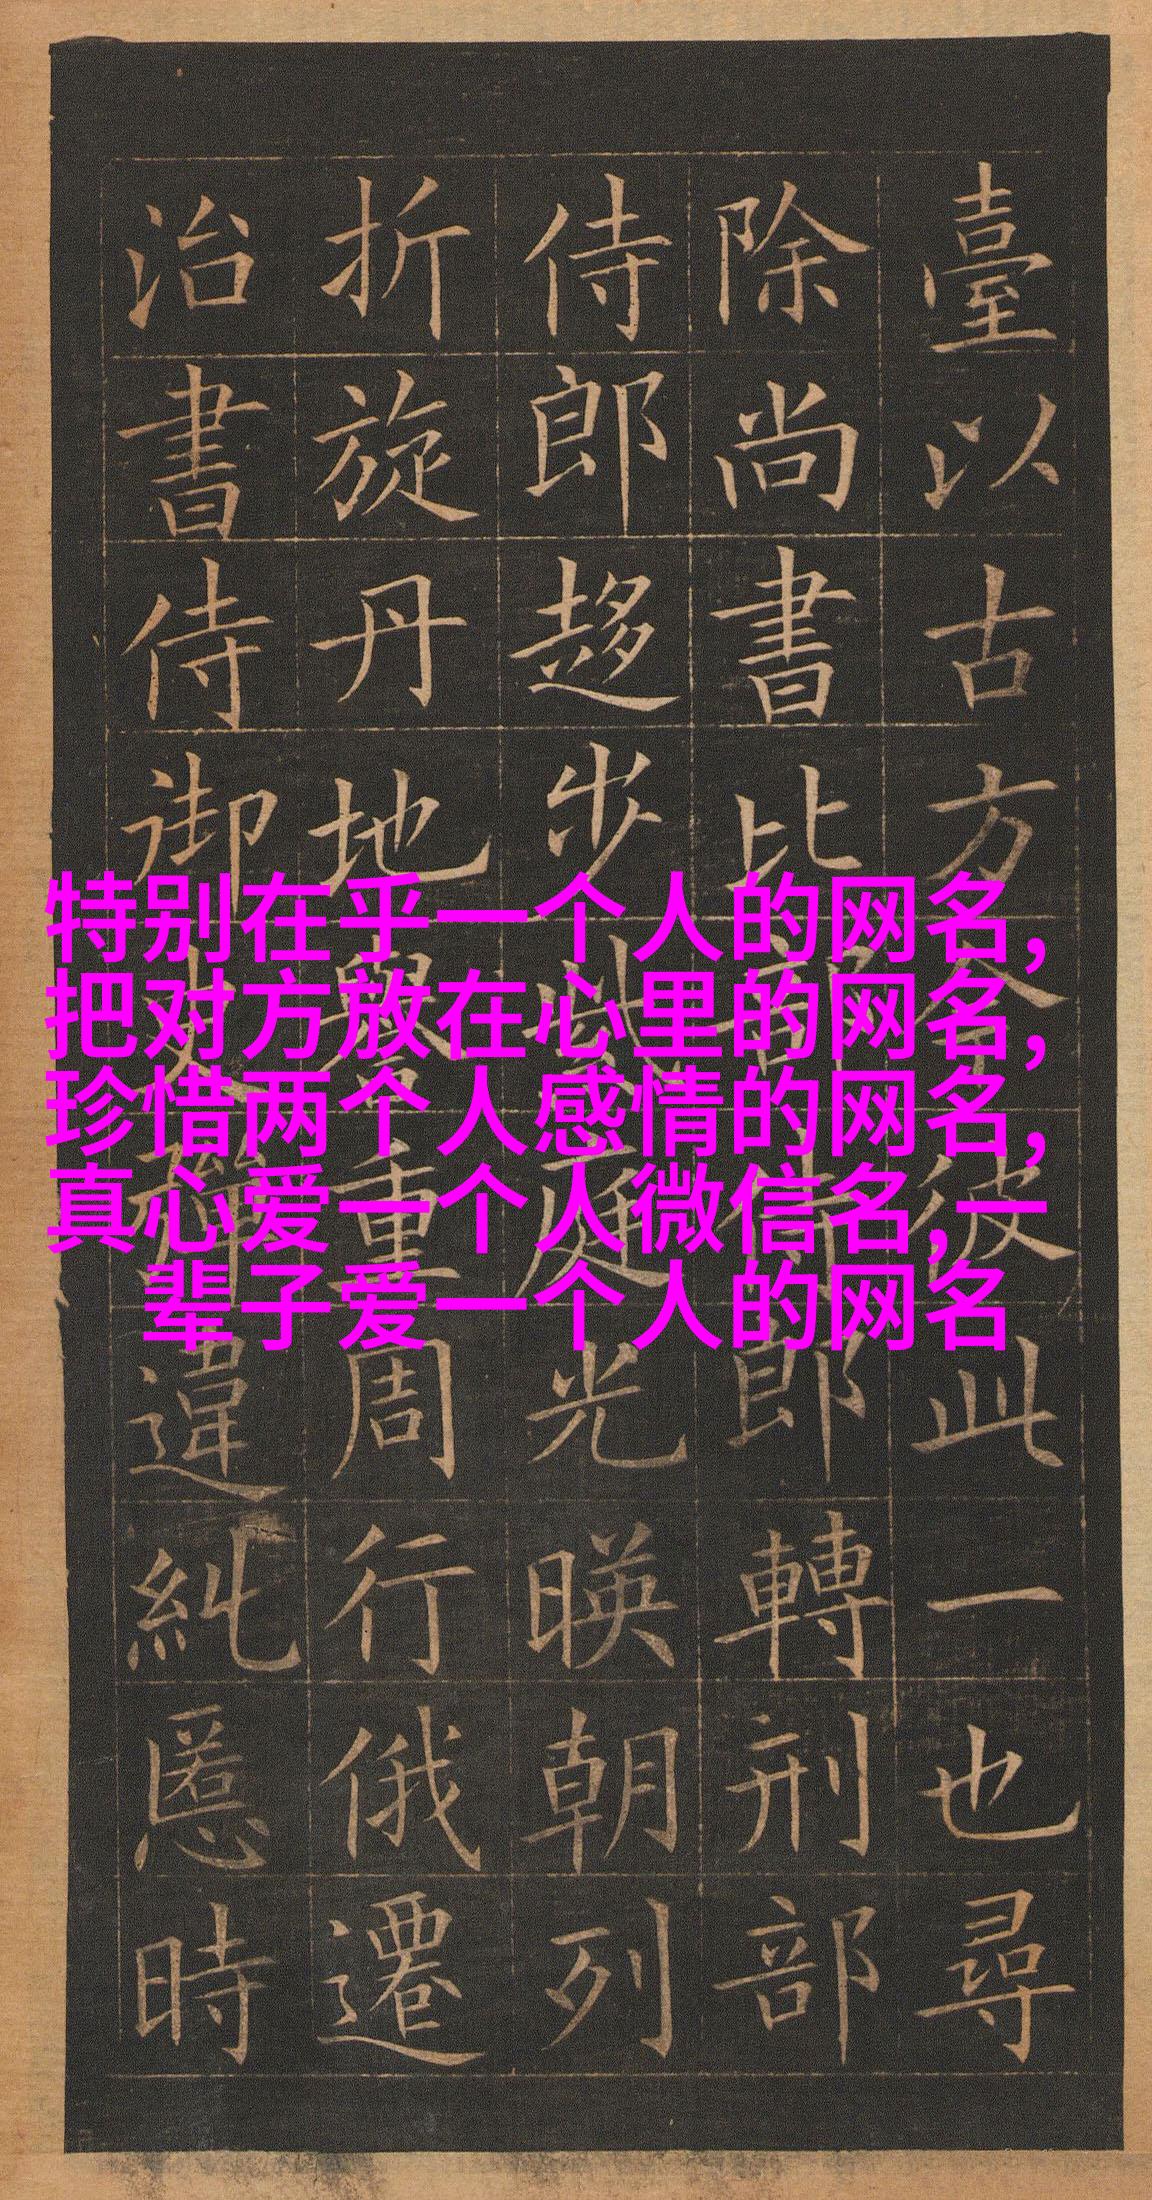 臺以古方今彼此一也尋
除尚書比部侍郎轉刑部
侍郎趍步紫庭光暎朝列
折旋丹地譽重周行俄遷
治書侍御史彈違糺慝時
特别在乎一个人的网名,
把对方放在心里的网名,
珍惜两个人感情的网名,
真心爱一个人微信名,一
辈子爱一个人的网名